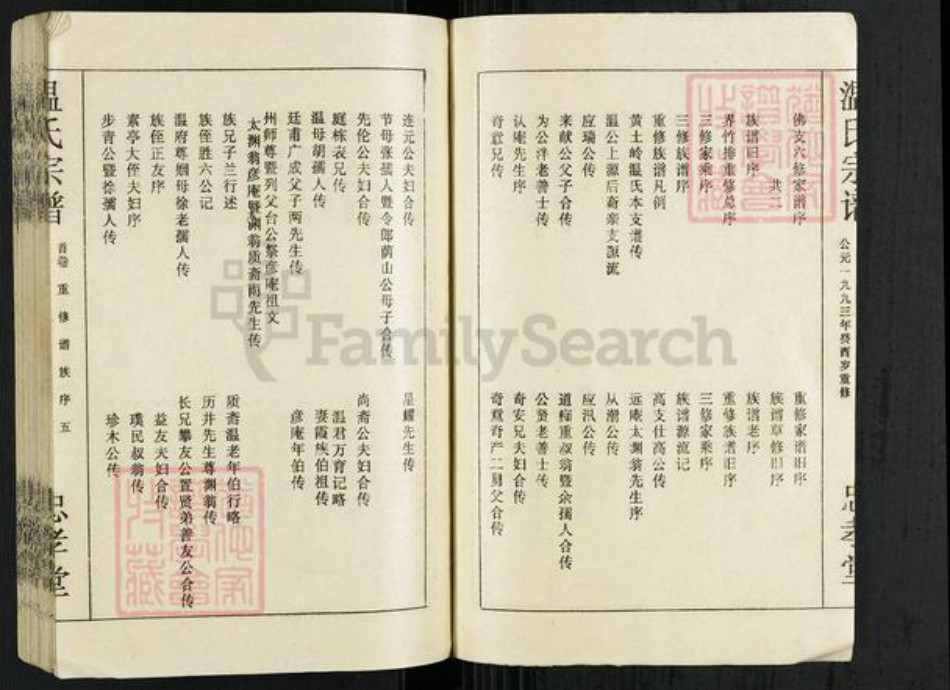 温氏宗谱
公元一九九三年癸酉岁重修
忠孝堂
佛支六修家谱序
重修家谱旧序
共二
族谱草修旧序
族谱旧序
族谱老序
界竹排重修总序
重修族谱旧序
三修家乘序
三修家乘序
三修族谱序
族谱源流记
重修族谱凡例
高支仕高公传
黄土岭温氏本支谱传
远庵太渊翁先生序
温公上源后裔亲支源流
从潮公传
应瑞公传
应汛公传
来献公父子合传
道痴重叔翁暨余孺人合传
为公泮老善士传
公贤老善士传
认庵先生序
奇安兄夫妇合传
奇意兄传
连元公夫妇合传
星耀先生传
节母张孺人暨令郎荫山公母子合传
先伦公夫妇合传
尚斋公夫妇合传
庭栋表兄传
温君万育记略
温母胡孺人传
妻霞族伯祖传
廷甫广成父子两先生传
彦庵年伯传
州师尊暨列父台公祭彦庵祖文
太渊翁彦庵暨渊翁质斋两先生传
族兄子兰行述
质斋温老年伯行略
族侄胜六公记
历井先生尊渊翁传
温府尊姻母徐老孺人传
长兄攀友公置贤弟善友公合传
族侄正友序
益友夫妇合传
素亭大侄夫妇序
璞民叔翁传
步青公暨徐孺人传
珍木公传
温氏宗谱
首卷 重修谱族序 五
忠孝堂
FamilySearch